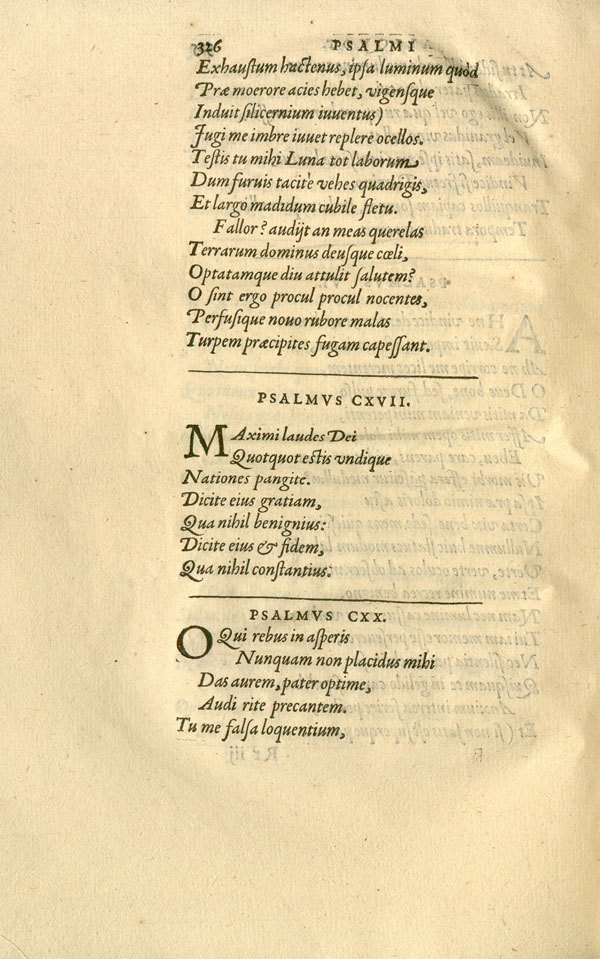 326 PSALMI
Exhaustum hactenus, ipsa luminum quòd
Præ moerore acies hebet, vigensque
Induit silicernium iuuentus)
Jugi me imbre iuuet replere ocellos.
Testis tu mihi Luna tot laborum,
Dum furuis tacitè vehes quadrigis,
Et largo madidum cubile fletu.
Fallor? audijt an meas querelas
Terrarum dominus deusque cœli,
Optatamque diu attulit salutem?
O sint ergo procul procul nocentes,
Perfusique nouo rubore malas
Turpem præcipites fugam capessant.
PSALMVS CXVII.
MAximi laudes Dei
Quotquot estis vndique
Nationes pangite.
Dicite eius gratiam,
Qua nihil benignius:
Dicite eius & fidem,
Qua nihil constantius.
PSALMVS CXX.
O Qui rebus in asperis
Nunquam non placidus mihi
Das aurem, pater optime,
Audi rite precantem.
Tu me falsa loquentium,